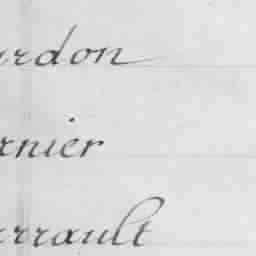 urdon
rnier
urrault